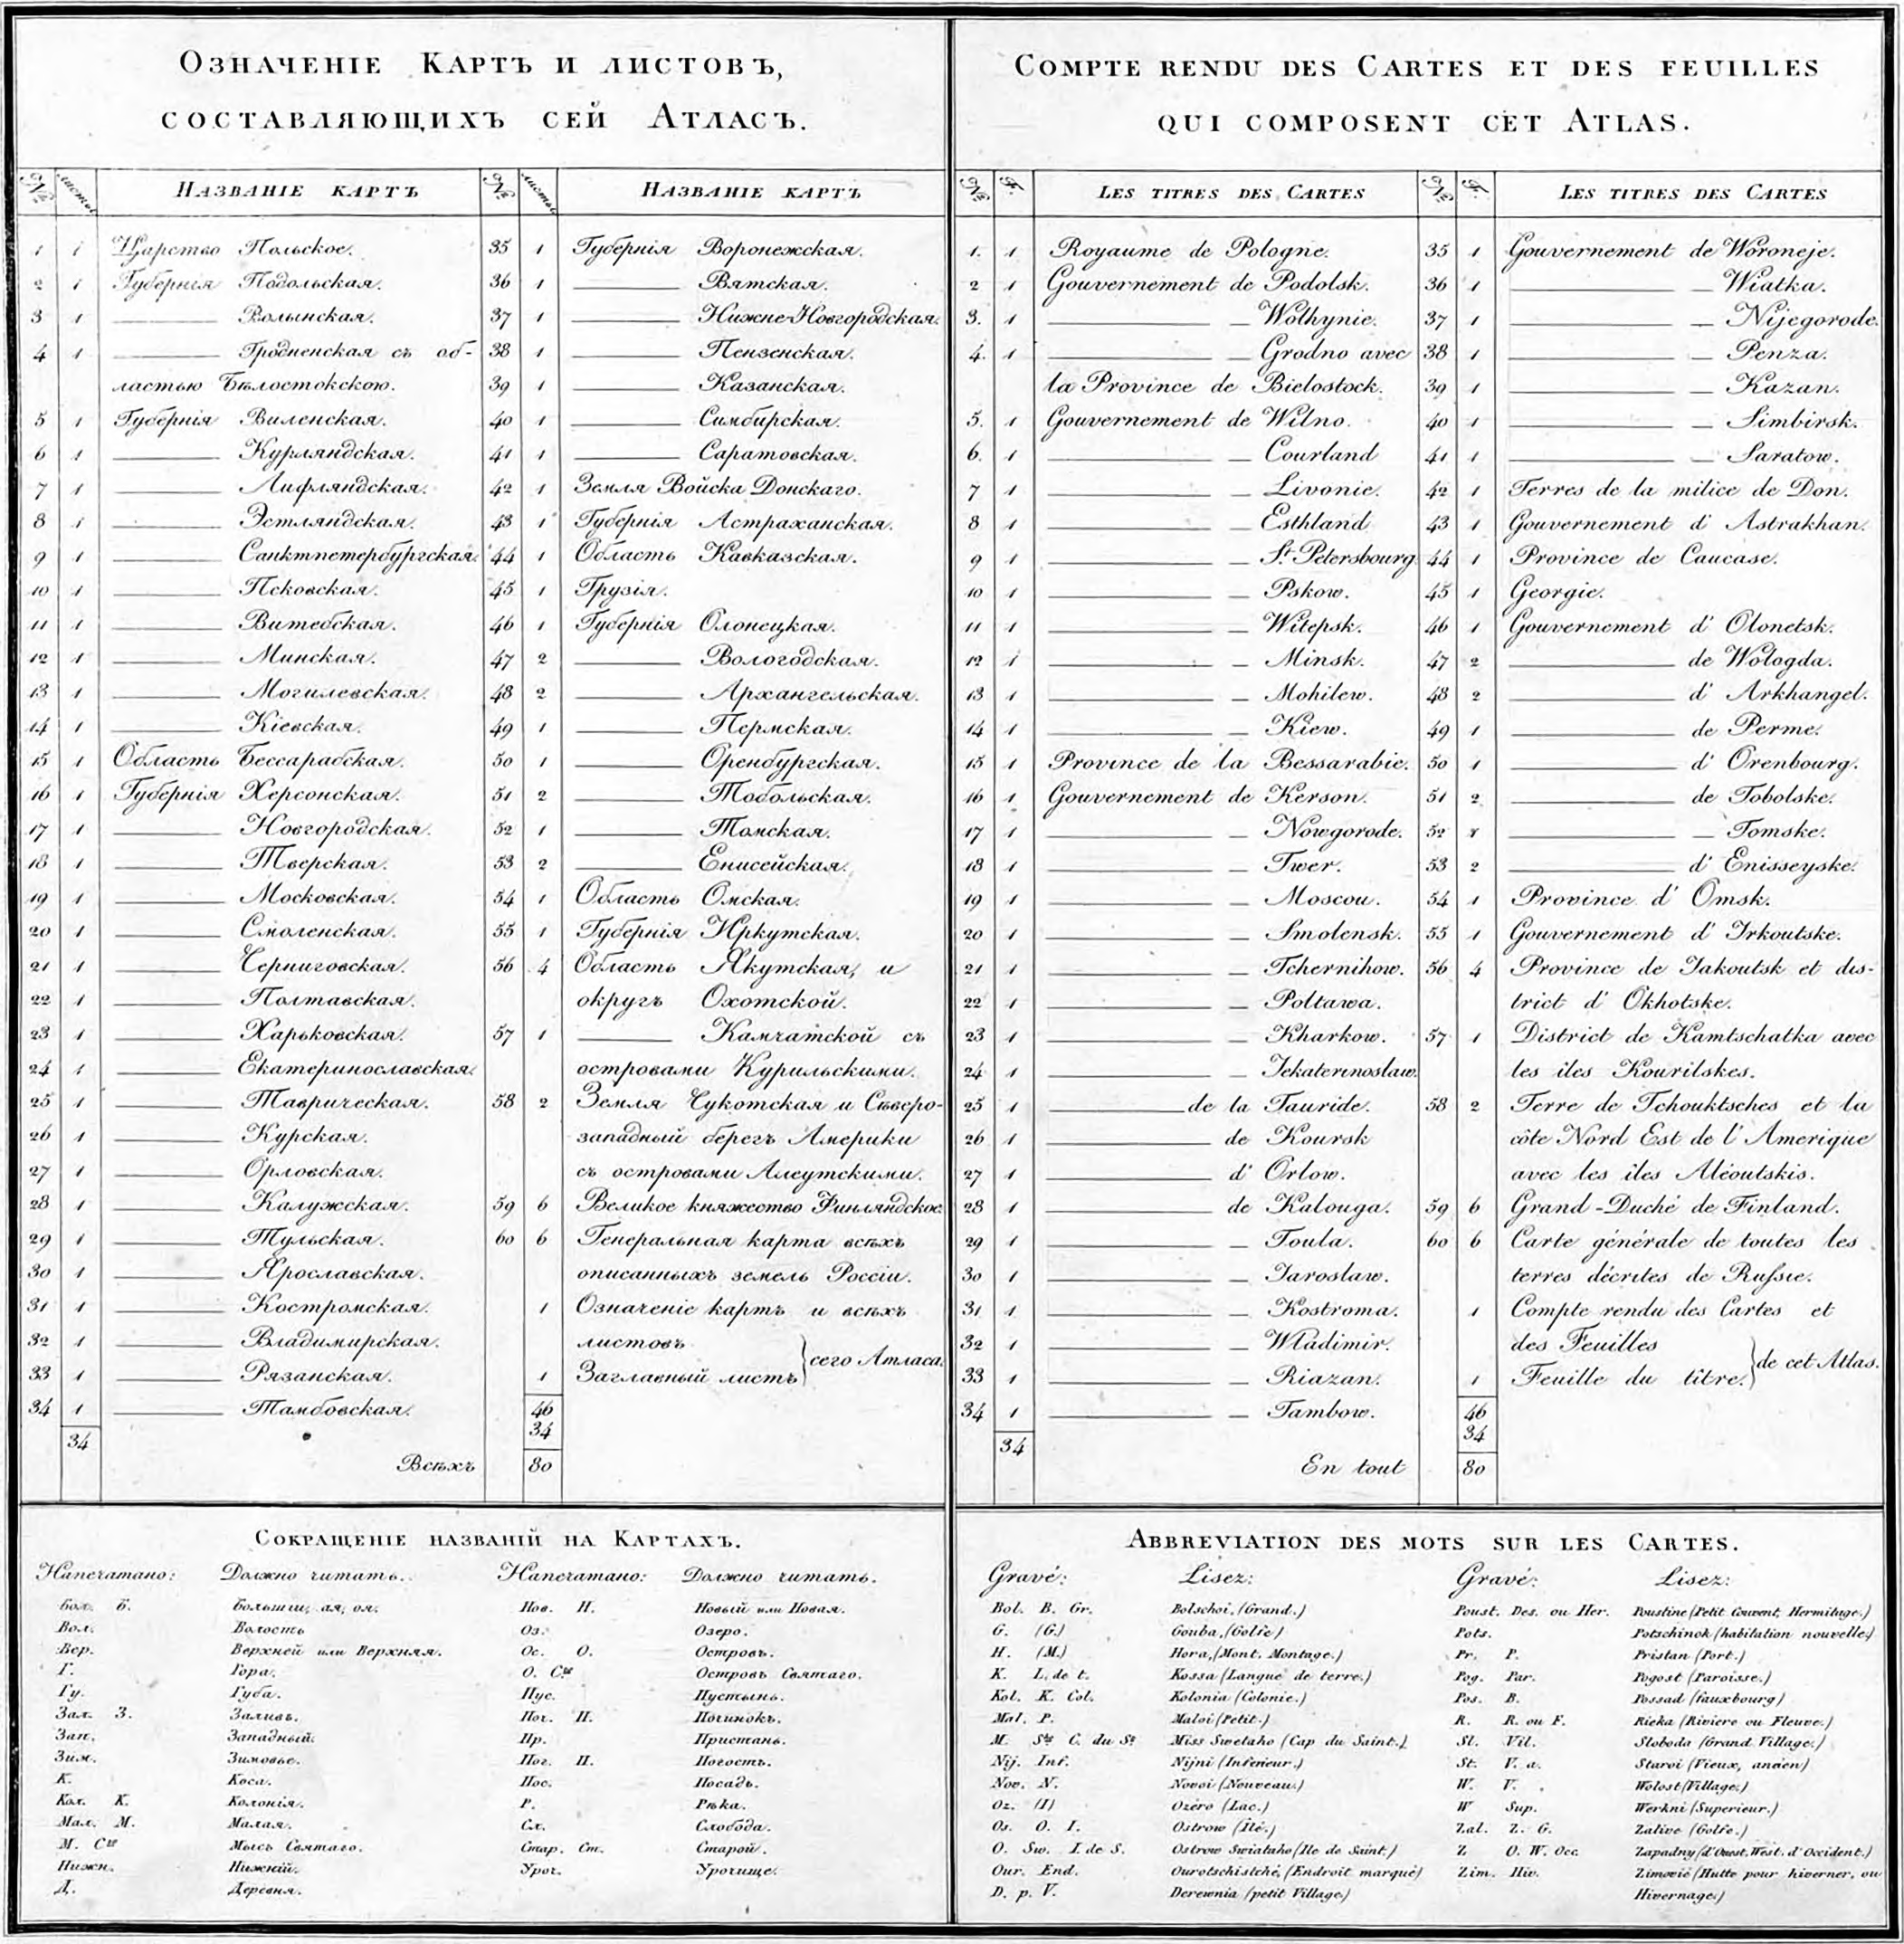 Означеніе Картъ и листовъ,
составляющихъ сей Атласъ.
№ листы Названіе картъ № листы Названіе картъ
1 1 Царство Польское. 35 1 Губернія Воронежская.
2 1 Губернія Подольская. 36 1 ——— Вятская.
3 1 ——— Волынская. 37 1 ——— Нижне-Новгородская.
4 1 ——— Гродненская съ об- 38 1 ——— Пензенская.
ластью Бѣлостокскою. 39 1 ——— Казанская.
5 1 Губернія Виленская. 40 1 ——— Симбирская.
6 1 ——— Курляндская. 41 1 ——— Саратовская.
7 1 ——— Лифляндская. 42 1 Земля Войска Донскаго.
8 1 ——— Эстляндская. 43 1 Губернія Астраханская.
9 1 ——— Санктпетербургская. 44 1 Область Кавказская.
10 1 ——— Псковская. 45 1 Грузія.
11 1 ——— Витебская. 46 1 Губернія Олонецкая.
12 1 ——— Минская. 47 2 ——— Вологодская.
13 1 ——— Могилевская. 48 2 ——— Архангельская.
14 1 ——— Кіевская. 49 1 ——— Пермская.
15 1 Область Бессарабская. 50 1 ——— Оренбургская.
16 1 Губернія Херсонская. 51 2 ——— Тобольская.
17 1 ——— Новгородская. 52 1 ——— Томская.
18 1 ——— Тверская. 53 2 ——— Енисейская.
19 1 ——— Московская. 54 1 Область Омская.
20 1 ——— Смоленская. 55 1 Губернія Иркутская.
21 1 ——— Черниговская. 56 4 Область Якутская, и
22 1 ——— Полтавская. округъ Охотской.
23 1 ——— Харьковская. 57 1 ——— Камчатской съ
24 1 ——— Екатеринославская. островами Курильскими.
25 1 ——— Таврическая. 58 2 Земля Чукотская и Сѣверо-
26 1 ——— Курская. западный берегъ Америки
27 1 ——— Орловская. съ островами Алеутскими.
28 1 ——— Калужская. 59 6 Великое княжество Финляндское.
29 1 ——— Тульская. 60 6 Генеральная карта всѣхъ
30 1 ——— Ярославская. описанныхъ земель Россіи.
31 1 ——— Костромская. 1 Означеніе картъ и всѣхъ
32 1 ——— Владимирская. листовъ
33 1 ——— Рязанская. 1 Заглавный листъ } сего Атласа.
34 1 ——— Тамбовская. 46
34 34
Всѣхъ 80
Compte rendu des Cartes et des feuilles
qui composent cet Atlas.
№ F. Les titres des Cartes № F. Les titres des Cartes
1. 1 Royaume de Pologne. 35 1 Gouvernement de Woroneje.
2 1 Gouvernement de Podolsk. 36 1 ——— — Wiatka.
3. 1 ——— — Wolhynie. 37 1 ——— — Nijegorode.
4. 1 ——— — Grodno avec 38 1 ——— — Penza.
la Province de Bielostock. 39 1 ——— — Kazan.
5. 1 Gouvernement de Wilno. 40 1 ——— — Simbirsk.
6. 1 ——— — Courland 41 1 ——— — Saratow.
7 1 ——— — Livonie. 42 1 Terres de la milice de Don.
8 1 ——— — Esthland 43 1 Gouvernement d' Astrakhan.
9 1 ——— — St. Petersbourg. 44 1 Province de Caucase.
10 1 ——— — Pskow. 45 1 Georgie.
11 1 ——— — Witepsk. 46 1 Gouvernement d' Olonetsk.
12 1 ——— — Minsk. 47 2 ——— de Wologda.
13 1 ——— — Mohilew. 48 2 ——— d' Arkhangel.
14 1 ——— — Kiew. 49 1 ——— de Perme.
15 1 Province de la Bessarabie. 50 1 ——— d' Orenbourg.
16 1 Gouvernement de Kerson. 51 2 ——— de Tobolske.
17 1 ——— — Nowgorode. 52 1 ——— — Tomske.
18 1 ——— — Twer. 53 2 ——— d' Enisseyske.
19 1 ——— — Moscou. 54 1 Province d' Omsk.
20 1 ——— — Smolensk. 55 1 Gouvernement d' Irkoutske.
21 1 ——— — Tchernihow. 56 4 Province de Jakoutsk et dis-
22 1 ——— — Poltawa. trict d' Okhotske.
23 1 ——— — Kharkow. 57 1 District de Kamtschatka avec
24 1 ——— — Jekaterinoslaw. les iles Kourilskes.
25 1 ——— de la Tauride. 58 2 Terre de Tchouktsches et la
26 1 ——— de Koursk côte Nord Est de l' Amerique
27 1 ——— d' Orlow. avec les iles Aléoutskis.
28 1 ——— de Kalouga. 59 6 Grand-Duché de Finland.
29 1 ——— — Toula. 60 6 Carte générale de toutes les
30 1 ——— — Jaroslaw. terres décrites de Russie.
31 1 ——— — Kostroma. 1 Compte rendu des Cartes et
32 1 ——— — Wladimir. des Feuilles
33 1 ——— — Riazan. 1 Feuille du titre. } de cet Atlas.
34 1 ——— — Tambow. 46
34 34
En tout 80
Сокращеніе названій на Картахъ.
Напечатано: Должно читать. Напечатано: Должно читать.
Бол. Б. Большіи, ая, ое. Нов. Н. Новый или Новая.
Вол. Волость Оз. Озеро.
Вер. Верхней или Верхняя. Ос. О. Островъ.
Г. Гора. О. Сго Островъ Святаго.
Гу. Губа. Пус. Пустынь.
Зал. З. Заливъ. Поч. П. Починокъ.
Зап. Западный. Пр. Пристань.
Зим. Зимовье. Пог. П. Погостъ.
К. Коса. Пос. Посадъ.
Кол. К. Колонія. Р. Рѣка.
Мал. М. Малая. Сл. Слобода.
М. Сго Мысъ Святаго. Стар. Ст. Старой.
Нижн. Нижній. Уроч. Урочище.
Д. Деревня.
Abbreviation des mots sur les Cartes.
Gravé: Lisez: Gravé: Lisez:
Bol. B. Gr. Bolschoi, (Grand.) Poust. Des. ou Her. Poustine (Petit Couvent, Hermitage.)
G. (G.) Gouba, (Golfe) Pots. Potschinok (habitation nouvelle.)
H. (M.) Hora, (Mont, Montage.) Pr. P. Pristan (Port.)
K. L. de t. Kossa (Langue de terre.) Pog. Par. Pogost (Paroisse.)
Kol. K. Col. Kolonia (Colonie.) Pos. B. Possad (fauxbourg)
Mal. P. Maloi (Petit.) R. R. ou F. Rieka (Riviere ou Fleuve.)
M. Sto C. du St Miss Swetaho (Cap du Saint.) Sl. Vil. Sloboda (Grand Village.)
Nij. Inf. Nijni (Inferieur.) St. V. a. Staroi (Vieux, ancien)
Nov. N. Novoi (Nouveau.) W. V. Wolost (Village.)
Oz. (I) Ozéro (Lac.) W Sup. Werkni (Superieur.)
Os. O. I. Ostrow (Ile.) Zal. Z. G. Zalive (Golfe.)
O. Sw. I. de S. Ostrow Swiataho (Ile de Saint.) Z O. W. Occ. Zapadny (d'Ouest, West. d'Occident.)
Our. End. Ourotschistché, (Endroit marqué) Zim. Hiv. Zimovié (Hutte pour hiverner, ou
D. p. V. Derewnia (petit Village.) Hivernage.)